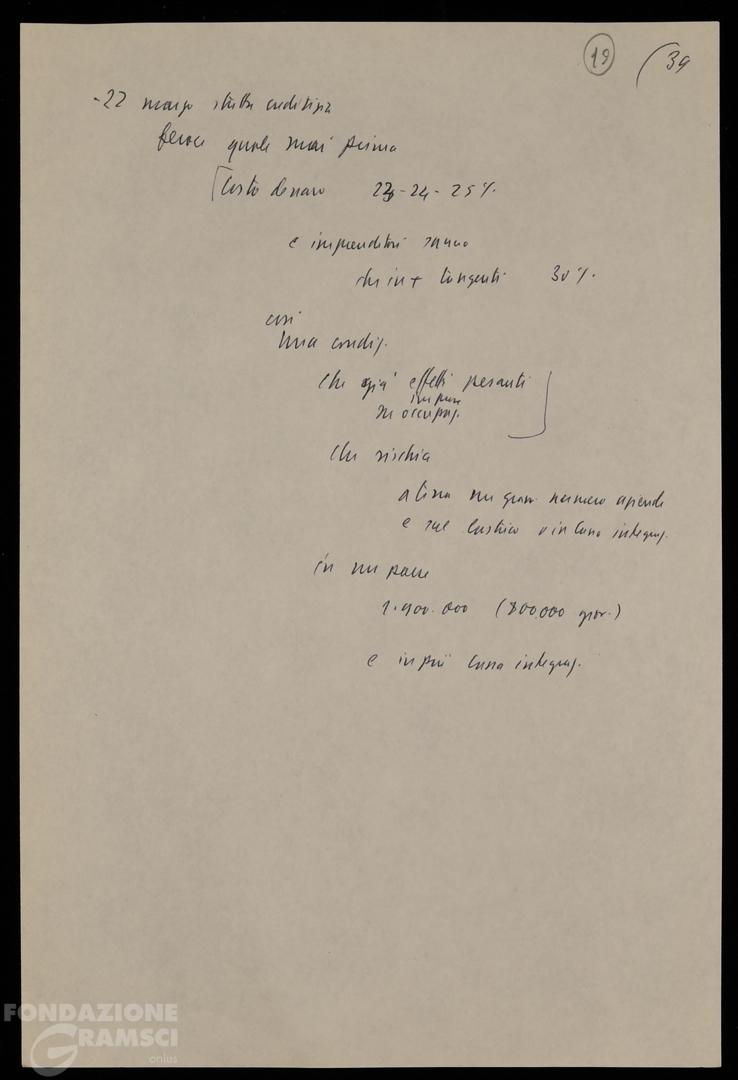 19 (39
-22 marzo stretta creditizia
feroce quale mai prima
[Costo denaro 23-24-25%.
e imprenditori sanno
che in + tangenti 30%.
così
Una condiz.
che già effetti pesanti
in pure
su occupaz.
che rischia
a lira un gran numero aziende
e sul lastrico o in Cassa integraz.
in un paese
1.900.000 (800.000 giov.)
e in più Cassa integraz.
FONDAZIONE
GRAMSCI
onlus